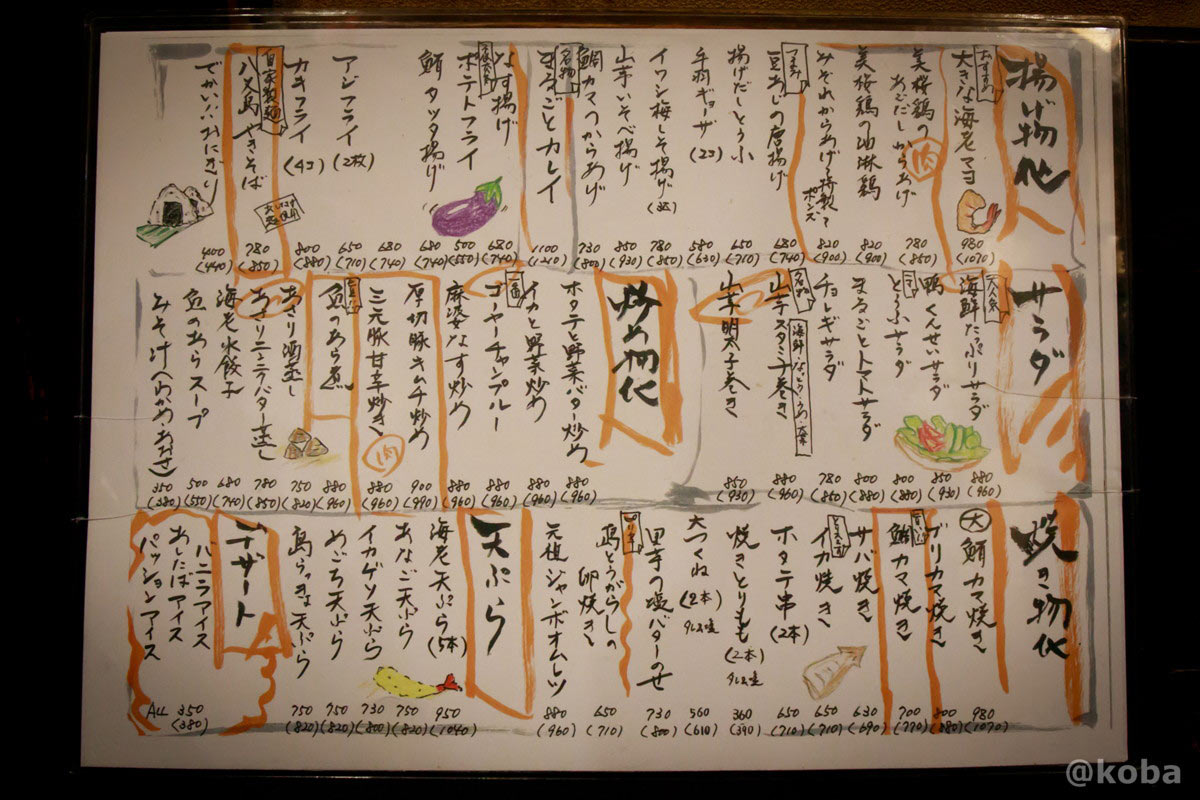 揚げ物他
おすすめ
大きな海老マヨ
980
(1070)
美桜鶏の
あごだしからあげ
肉
780
(850)
美桜鶏の油淋鶏
820
(900)
みぞれからあげ
ポンズ
820
(900)
豆あじの唐揚げ
680
(740)
揚げだしとうふ
650
(710)
手羽ギョーザ
(2コ)
580
(630)
イワシ梅しそ揚げ
780
(850)
山芋いそべ揚げ
850
(930)
鯛カマのからあげ
730
(800)
名物
まるごとカレイ
1100
(1210)
なす揚げ
680
(740)
ポテトフライ
500
(550)
鯖タツタ揚げ
680
(740)
680
(740)
アジフライ
(2枚)
650
(710)
カキフライ
(4コ)
800
(880)
自家製麺
八丈島やきそば
780
(850)
でかいいおにぎり
400
(440)
サラダ
大人気
海鮮たっぷりサラダ
880
(960)
鴨くんせいサラダ
850
(930)
とうふサラダ
800
(880)
まるごとトマトサラダ
800
(880)
チョレギサラダ
780
(850)
名物
山芋スタミナ巻き
海鮮・なっとう・うめ・大葉
880
(960)
山芋明太子巻き
850
(930)
炒め物他
ホタテと野菜バター炒め
880
(960)
イカと野菜炒め
880
(960)
一番
ゴーヤーチャンプルー
880
(960)
麻婆なす炒め
880
(960)
厚切豚キムチ炒め
900
(990)
三元豚甘辛炒き
肉
880
(960)
魚のあら煮
880
(960)
あさり酒蒸し
750
(820)
あさりニラバター蒸し
780
(850)
海老水餃子
680
(740)
魚のあらスープ
500
(550)
みそ汁(わかめ・あおさ)
350
(380)
焼き物他
大
鯖カマ焼き
980
(1070)
ブリカマ焼き
800
(880)
鯛カマ焼き
700
(770)
サバ焼き
630
(690)
イカ焼き
650
(710)
ホタテ串
(2本)
650
(710)
焼きとりもも
(2本)
タレ or 塩
360
(390)
大つくね
(2本)
タレ or 塩
560
(610)
里芋の塩バターのせ
730
(800)
島とうがらしの
卵焼き
650
(710)
元祖ジャンボオムレツ
880
(960)
天ぷら
海老天ぷら
(5本)
950
(1040)
あなご天ぷら
750
(820)
イカゲソ天ぷら
730
(800)
めごち天ぷら
750
(820)
島らっきょ天ぷら
750
(820)
デザート
バニラアイス
あしたばアイス
パッションアイス
ALL
350
(380)
@koba